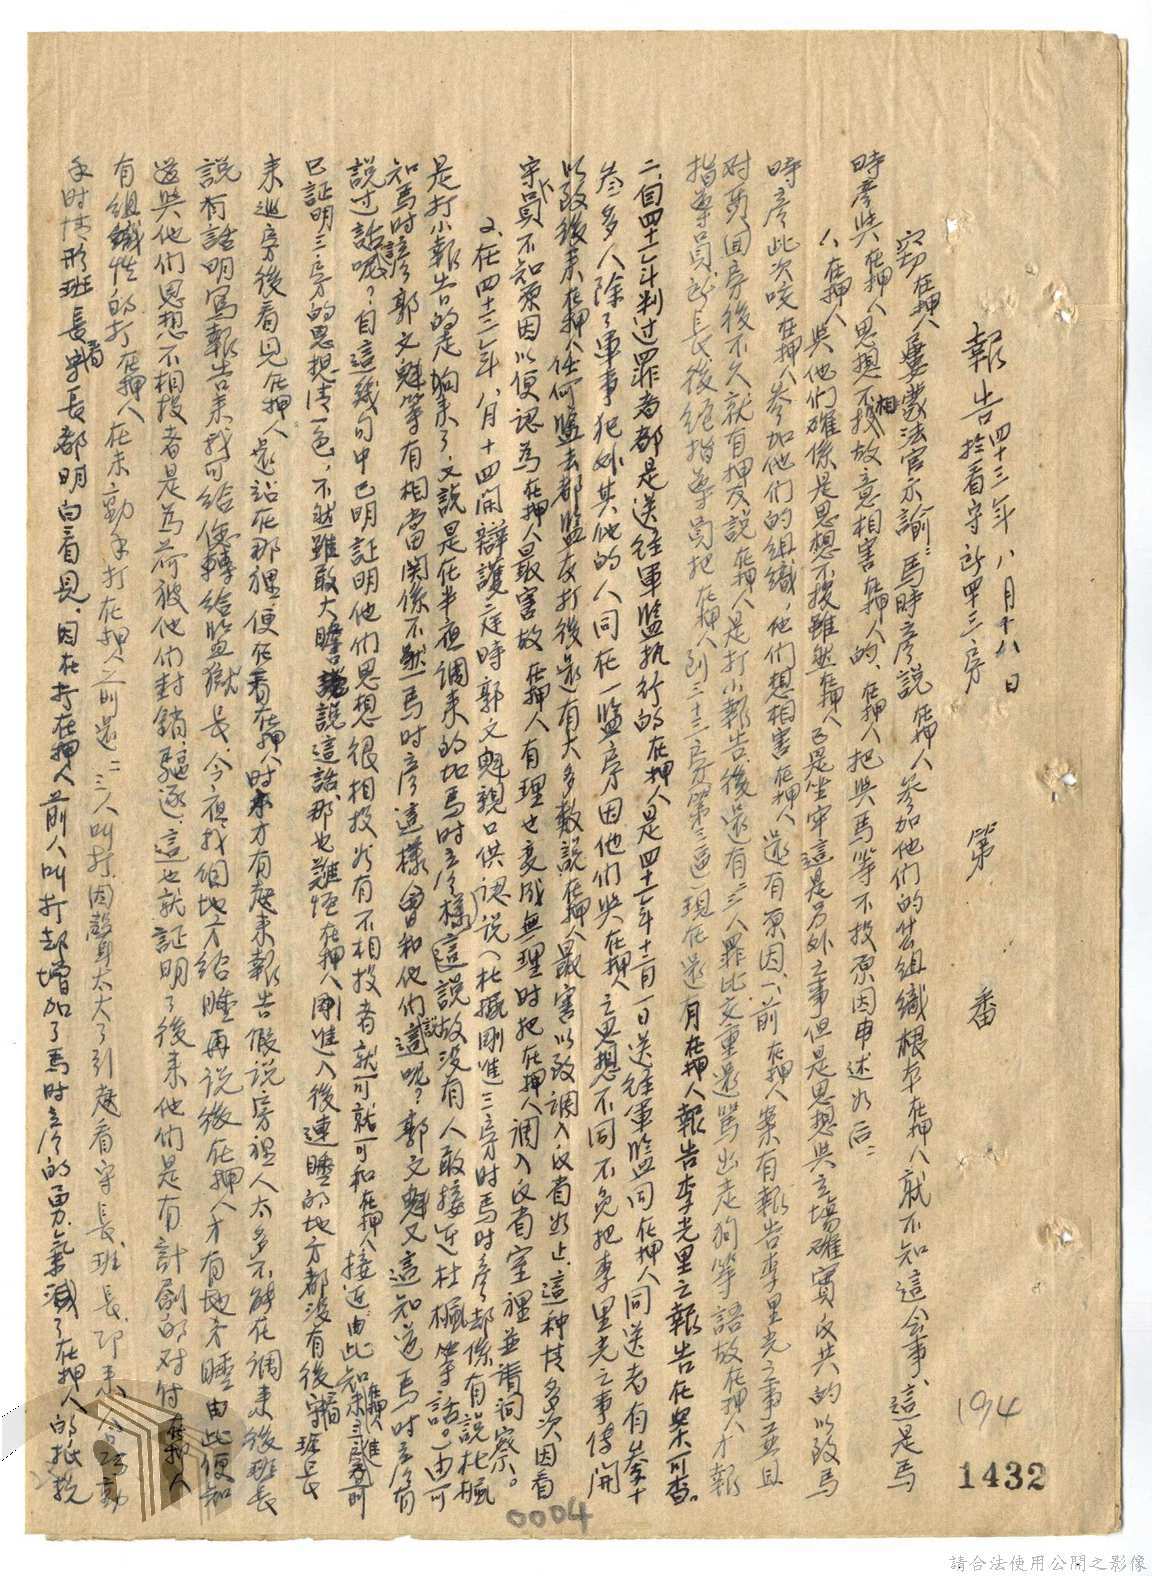 報告 四十三年八月十八日 於看守所第三房 第 番
竊在押人屢蒙法官示諭：馬時彥說在押人參加他們的什么組織根本在押人就不知這会事、這是馬
時彥與在押人思想不相投故意相害在押人的、在押人把與馬等不投原因申述如后：
1、在押人與他們確係是思想不投雖然在押人已是坐牢這是另外之事但是思想與立場確實反共的以致馬
時彥此次咬在押人參加他們的組織，他們想相害在押人還有原因、1、前在押人案有報告李里光之事並且
对質回房後不久就有押友說在押人是打小報告後還有三人罪比交重還罵出走狗等語故在押人才報
指導員所長後經指導員把在押人到三十三房第三區現在還有在押人報告李光里之報告在案可查。
二、自四十二年判过罪者都是送往軍監执行的在押人是四十二年十二月一日送往軍監同在押人同送者有叁十
叁多人除了軍事犯外其他的人同在一監房因他們與在押人之思想不同不免把李里光之事传開
以致後来在押人任何監去都監友打後還有大多数說在押人最害以致調入反省为止、這种情多次因看
守員不知原因以便認為在押人最害故在押人有理也变成無理时把在押人調入反省室裡並請洞察。
2、在四十三年、八月十四開辯護庭時郭文魁親口供認說(杜楓剛進三房时馬时彥却係有說杜楓
是打小報告的是响来了，又說是在半夜調来的如馬时彥這樣說故没有人敢接近杜楓等話。)由可
知馬时彥郭文魁等有相當関係不然馬时彥這樣會和他們說這呢？郭文魁又這知道馬时彥有
說过話呢？自這幾句中已明証明他們思想很相投如有不相投者就可就可和在押人接近由此知在押人進未三房前
已証明三房的思想清一色，不然雖敢大瞻說這話那也難怪在押人剛進入後連睡的地方都没有後看守班長
来巡房後看見在押人還站在那裡便在看在押人时才有起来報告假說房裡人太多不能在調来後班長
說有話明寫報告来我可給便轉給監獄長、今夜找個地方給睡再說後在押人才有地方睡由此便知
道與他們思想不相投者是為苛被他們封鎖驅逐、這也就証明了後来他們是有計劃的对付在押人
有組織性的打在押人在未動手打在押人之前還二三人叫打因聲太大了引起看守長、班長、即来
手时情形班長看守長都明白看見、因在打在押人前人叫打却增加了馬时彥的勇氣減了在押人的抵抗
194
1432
0004
請合法使用公開之影像